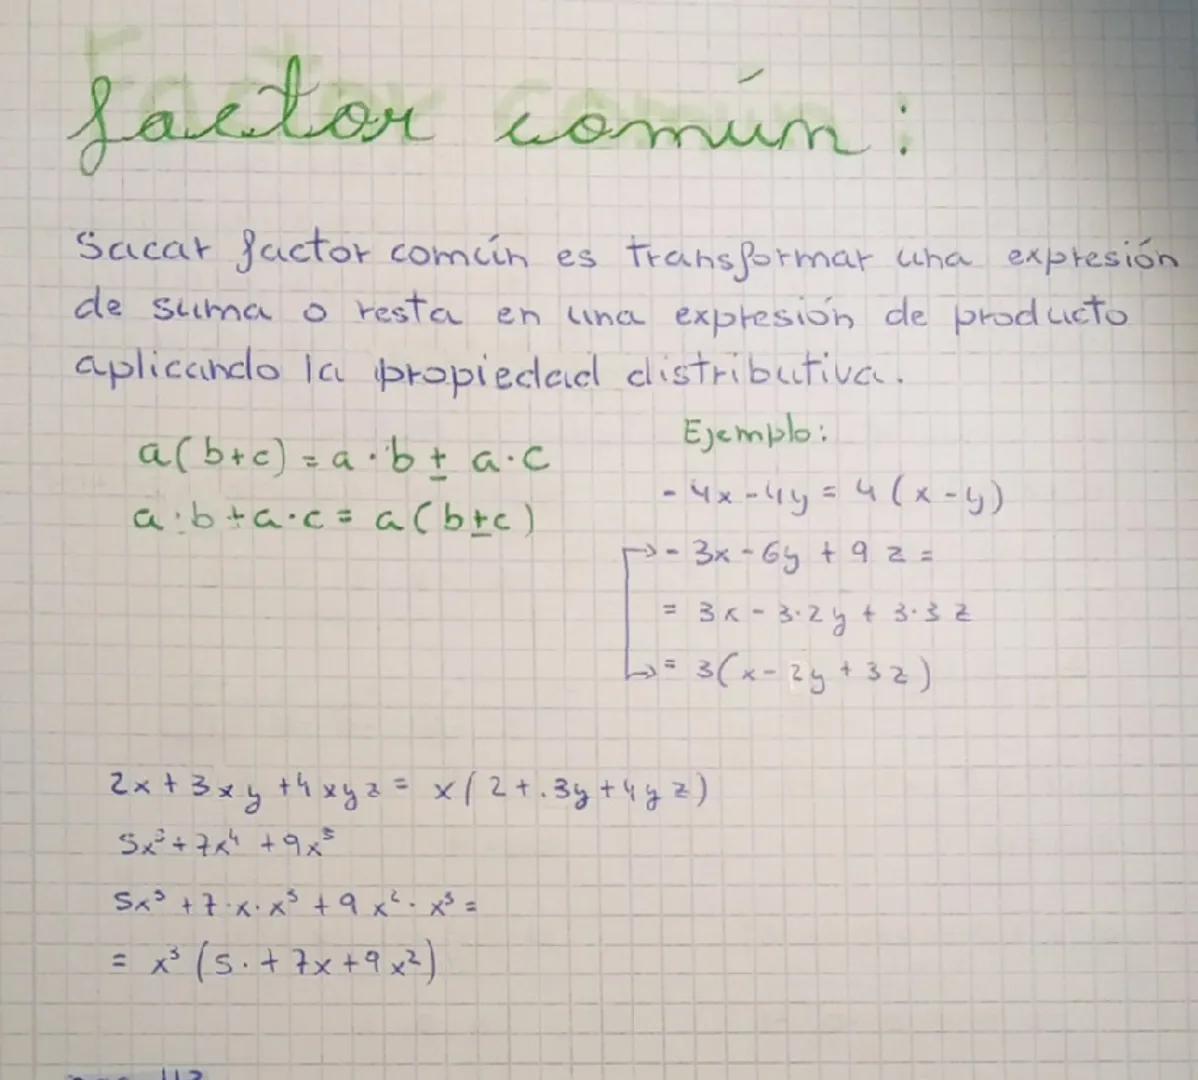 factor común:
Sacar factor común es transformar una expresión
de suma o resta en una expresión de producto
aplicando la propiedad distributiva.
a(b+c)=a·b±a·c
a·b+a·c=a(b±c)
Ejemplo:
- 4x-4y=4(x-y)
- 3x-6y+9z=
= 3x-3·2y+3·3z
= 3(x-2y+3z)
2x+3xy+4xyz= x(2+.3y+4yz)
5x³+7x⁴+9x⁵
5x³+7·x·x³+9x²·x³=
= x³(5.+7x+9x²)